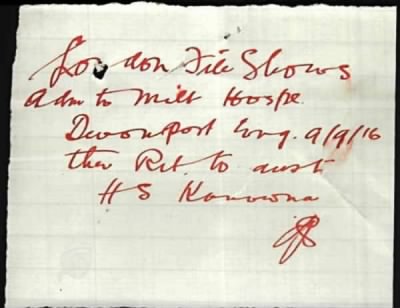 London File Shows
adm to Milt Hospl.
Devonport Eng. 9/9/16
then Ret to aust
HS Kanowna